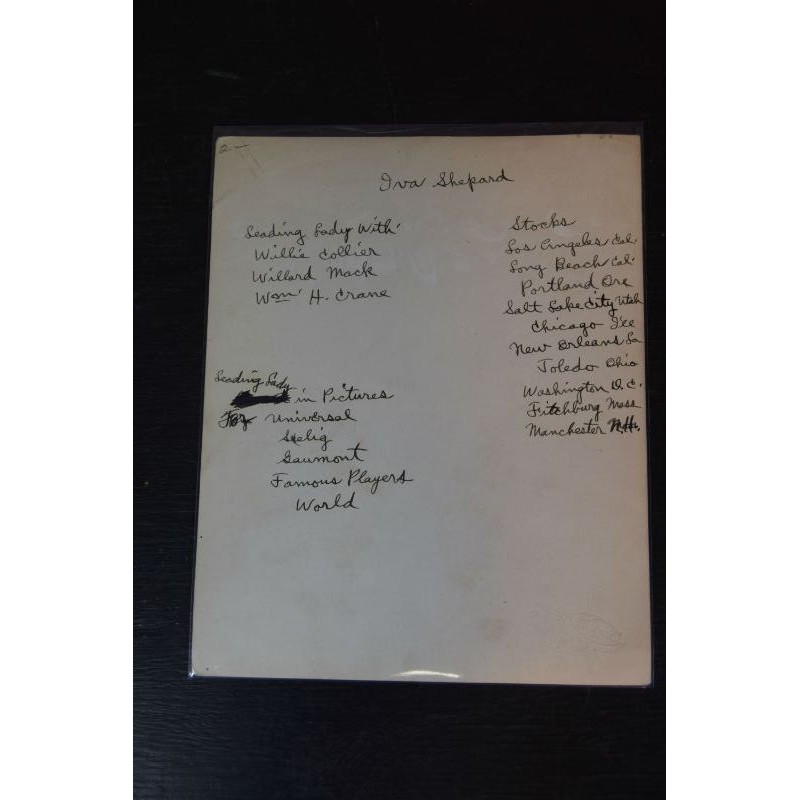 2—
Iva Shepard
Leading Lady With
Willie Collier
Willard Mack
Wm H. Crane
Leading Lady
in Pictures
For Universal
Selig
Gaumont
Famous Players
World
Stocks
Los Angeles Cal.
Long Beach Cal.
Portland Ore
Salt Lake City Utah
Chicago Ill
New Orleans La
Toledo Ohio
Washington D.C.
Fitchburg Mass
Manchester N.H.